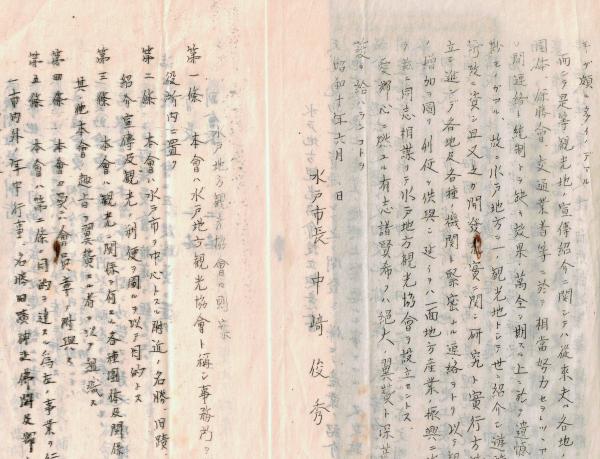 キヲ願フタメノミデアル
而シテ是等観光地ノ宣傳紹介ニ関シテハ從来夫々各地ノ
團体 保勝會 交通業者等ニ於テ相當努力セラレツヽア
間連絡ト統制トヲ缺キ效果ノ萬全ヲ期スル上ニ於テ遺憾
故ニ水戸地方ヲ一観光地トシテ世ニ紹介シ遊覧
行政ニ資シ且又之カ開發ニ関シ研究ト實行方法
立シ進ンデ各地及各種ノ機関ト緊密ナル連絡ヲトリ以テ観
増加ヲ圖リ利便ヲ供與シ延イテハ一面地方産業ノ振興ニ
茲ニ同志相謀リテ水戸地方観光協會ヲ設立セントス
愛郷心ニ燃ユル有志諸賢希クハ絶大ノ翼賛ト深甚
給ハランコトヲ
昭和十年六月 日
水戸市長 中崎俊秀
水戸地方観光協會々則案
第一條 本會ハ水戸地方観光協會ト稱シ事務所ヲ
役所内ニ置ク
第二條 本會ハ水戸市ヲ中心トスル附近ノ名勝、旧蹟、
紹介宣傳及観光ノ利便ヲ圖ルヲ以テ目的トス
第三條 本會ハ観光ニ関係ヲ有スル各種團体及関係
其ノ他本會ノ趣旨ヲ翼賛スル者ヲ以テ組織ス
第四條 本會ハ 會員章ヲ附與ス
第五條 本會ハ第二條ノ目的ヲ達スル為左ノ事業ヲ行
一、市内外ノ年中行事、名勝旧蹟神社佛閣及